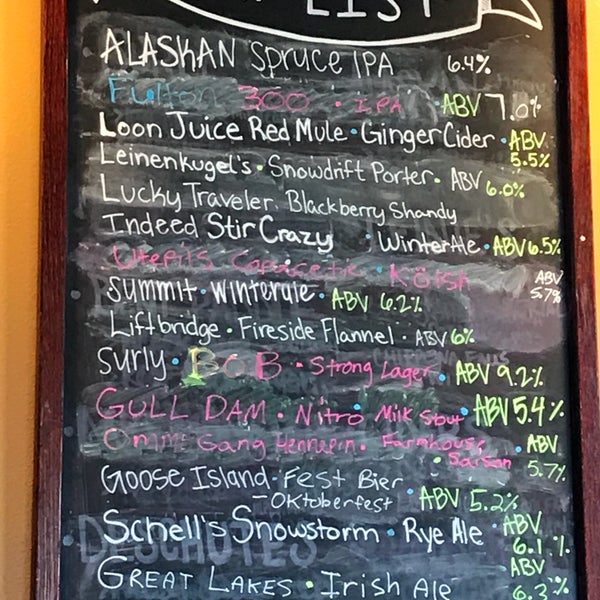 LIST
ALASKAN Spruce IPA 6.4%
Fulton 300 • IPA • ABV 7.0%
Loon Juice Red Mule • Ginger Cider • ABV 5.5%
Leinenkugel's • Snowdrift Porter • ABV 6.0%
Lucky Traveler. Blackberry Shandy
Indeed Stir Crazy • Winter Ale • ABV 6.5%
Utepils Copacetic • Kölsh ABV 5.7%
Summit • Winterale • ABV 6.2%
Liftbridge • Fireside Flannel • ABV 6%
Surly • BOB • Strong Lager • ABV 9.2%
GULL DAM • Nitro Milk Stout • ABV 5.4%
Omme Gang Hennepin • Farmhouse • ABV
• Saison 5.7%
Goose Island • Fest Bier
– Oktoberfest • ABV 5.2%
Schell's Snowstorm • Rye Ale • ABV 6.1%
DESCHUTES
GREAT LAKES • Irish Ale ABV 6.3%